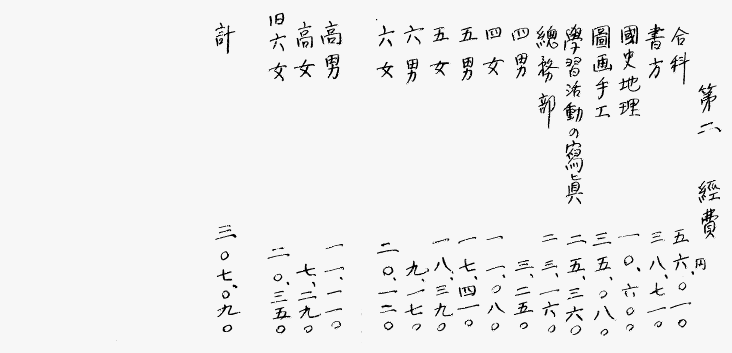 第二 經費
合科 五六円、〇一〇
書方 三八、七一〇
國史地理 一〇、六〇〇
圖画手工 三五、〇八〇
學習活動の寫眞 二五、三六〇
總務部 二三、一六〇
四男 三、二五〇
四女 一一、〇八〇
五男 一七、四一〇
五女 一八、三九〇
六男 九、一七〇
六女 二〇、一二〇
高男 一一、一一〇
高女 七、二九〇
旧六女 二〇、三五〇
計 三〇七、〇九〇